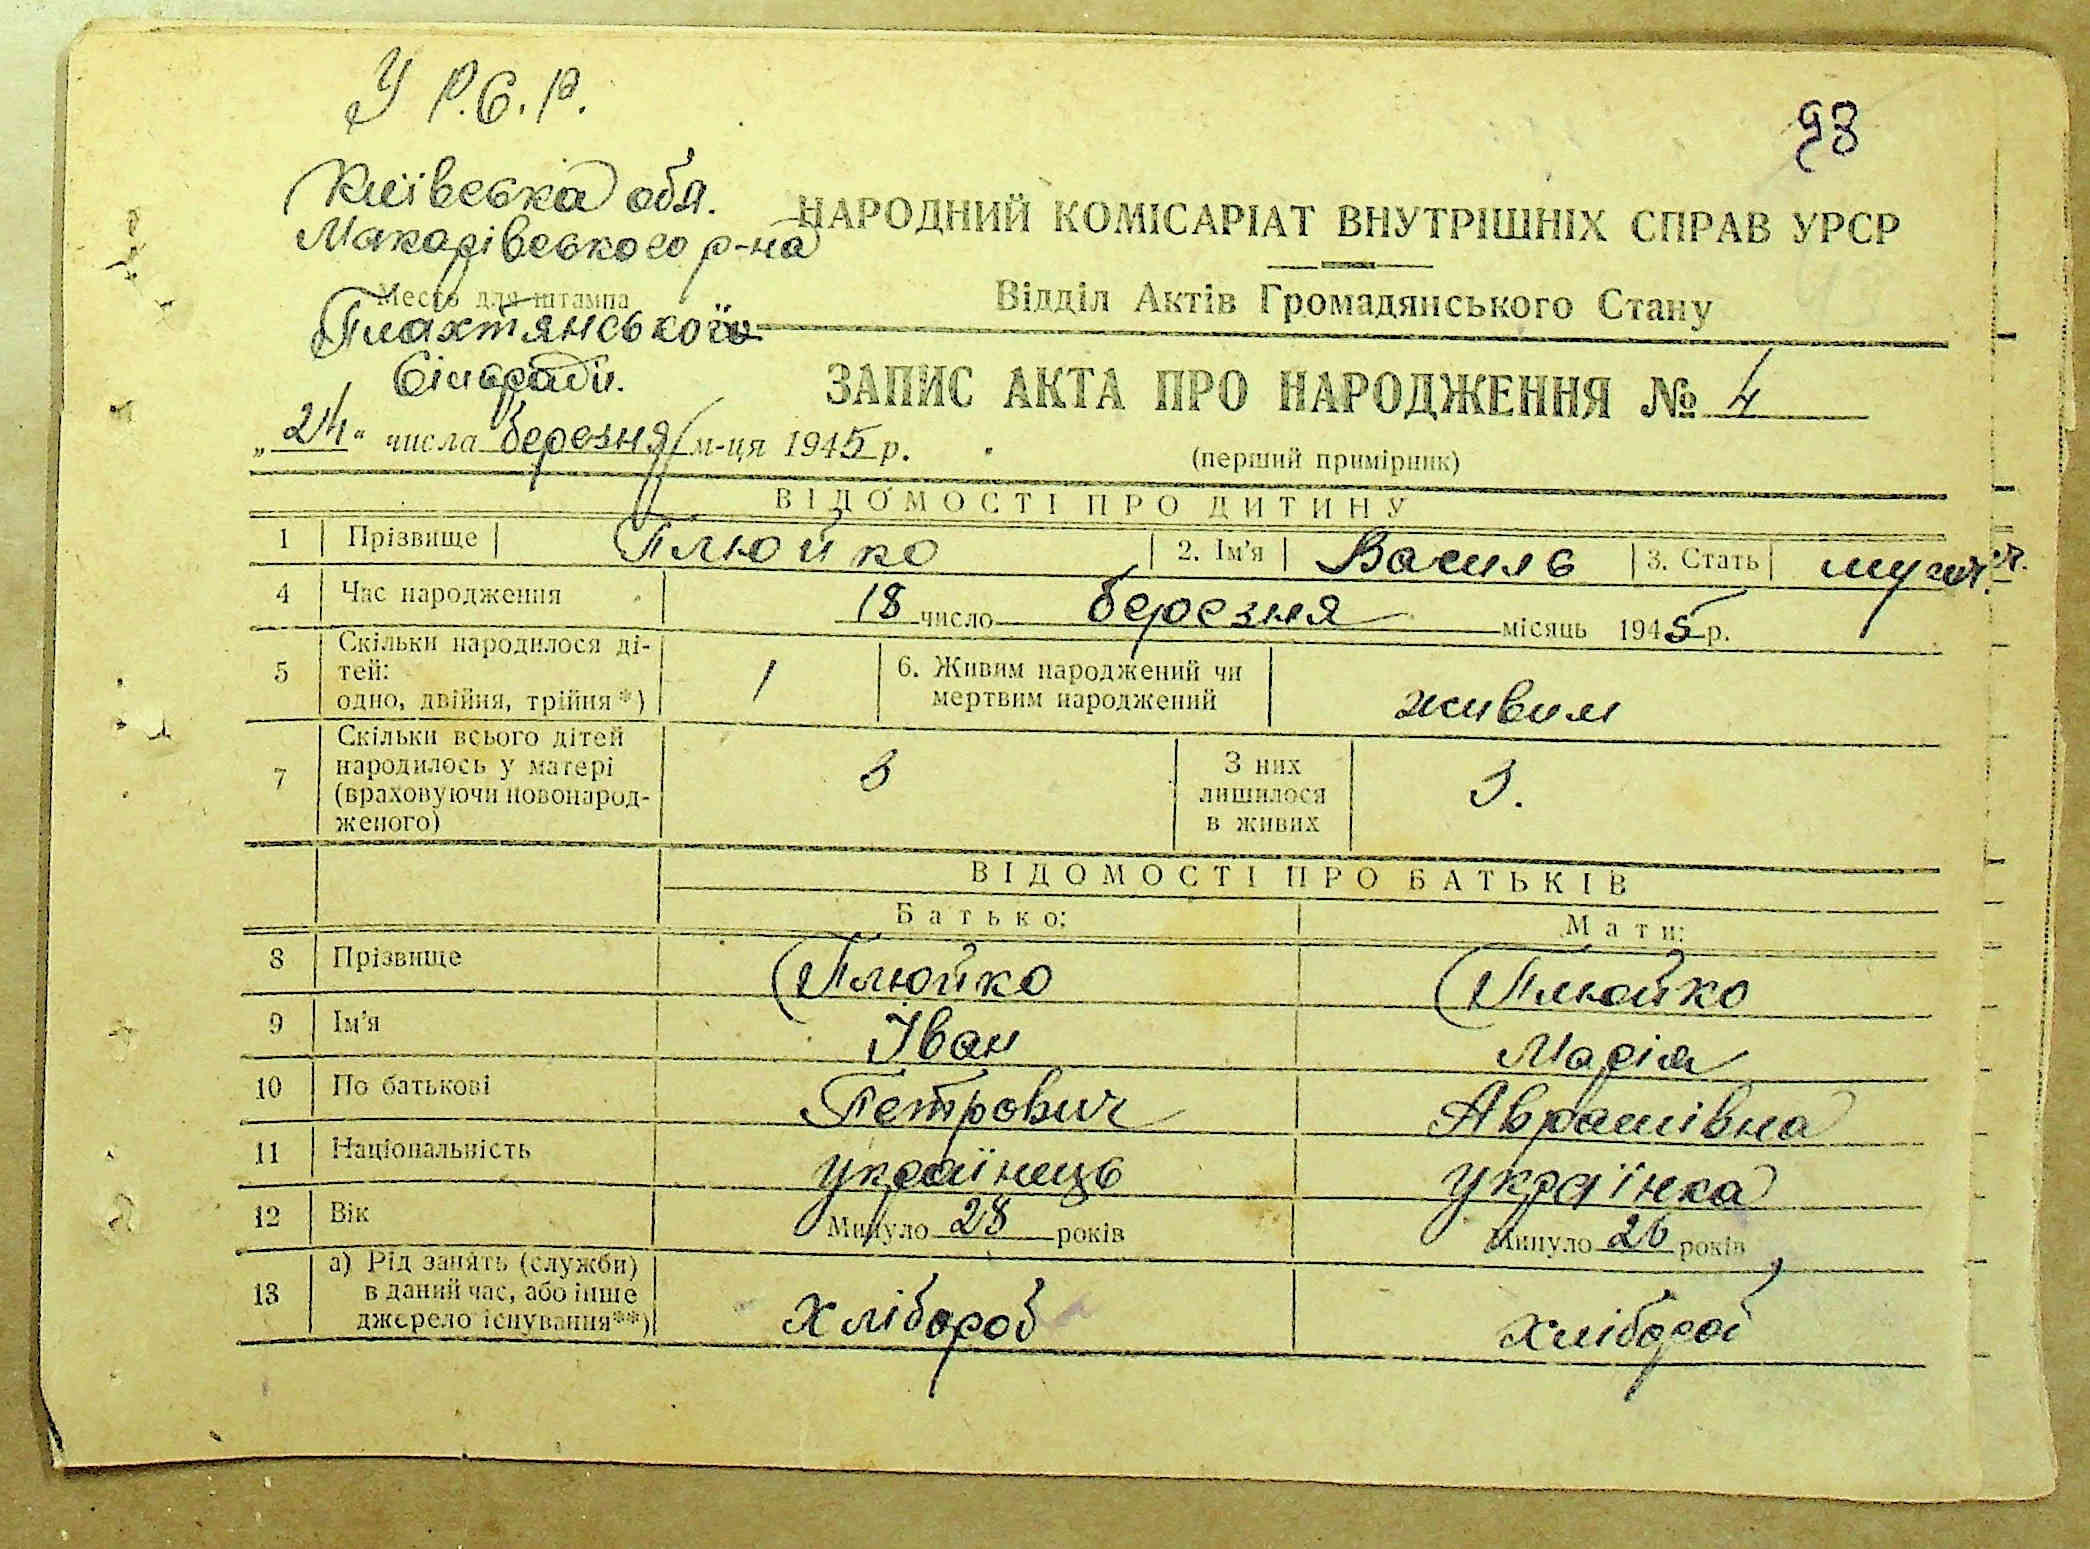 У Р.С.Р.
98
Київська обл.
Макарівського р-на
НАРОДНИЙ КОМІСАРІАТ ВНУТРІШНІХ СПРАВ УРСР
Место для штампа
Плахтянської
Сільради.
Відділ Актів Громадянського Стану
ЗАПИС АКТА ПРО НАРОДЖЕННЯ № 4
„24“ числа березня м-ця 1945 р.
(перший примірник)
ВІДОМОСТІ ПРО ДИТИНУ
1 Прізвище Плюйко 2. Ім'я Василь 3. Стать
4 Час народження 18 число березня місяць 1945 р.
5 Скільки народилося ді-
тей:
одно, двійня, трійня*) 1
6. Живим народжений чи
мертвим народжений живим
7 Скільки всього дітей
народилось у матері
(враховуючи новонарод-
женого) 3
З них
лишилося
в живих 3.
ВІДОМОСТІ ПРО БАТЬКІВ
Батько: Мати:
8 Прізвище Плюйко Плюйко
9 Ім'я Іван Марія
10 По батькові Петрович Аврамівна
11 Національність українець українка
12 Вік Минуло 28 років Минуло 26 років
13 а) Рід занять (служби)
в даний час, або інше
джерело існування**) хлібороб хлібороб